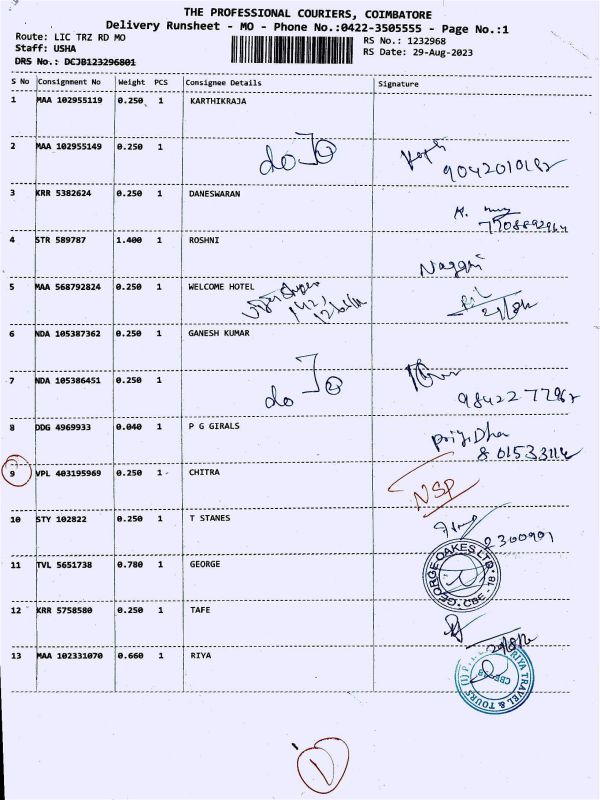 THE PROFESSIONAL COURIERS, COIMBATORE
Delivery Runsheet - MO - Phone No.:0422-3505555 - Page No.:1
Route: LIC TRZ RD MO
RS No.: 1232968
Staff: USHA
RS Date: 29-Aug-2023
DRS No.: DCJB123296801
S No Consignment No Weight PCS Consignee Details Signature
1 MAA 102955119 0.250 1 KARTHIKRAJA
2 MAA 102955149 0.250 1 do
9042010182
3 KRR 5382624 0.250 1 DANESWARAN
4 STR 589787 1.400 1 ROSHNI
5 MAA 568792824 0.250 1 WELCOME HOTEL
6 NDA 105387362 0.250 1 GANESH KUMAR
7 NDA 105386451 0.250 1 do
8 DDG 4969933 0.040 1 P G GIRALS
9 VPL 403195969 0.250 1 CHITRA NSP
10 STY 102822 0.250 1 T STANES
2300901
11 TVL 5651738 0.780 1 GEORGE GEORGE OAKES LTD. CBE - 18
12 KRR 5758580 0.250 1 TAFE
13 MAA 102331070 0.660 1 RIYA RIYA TRAVEL & TOURS (I) P